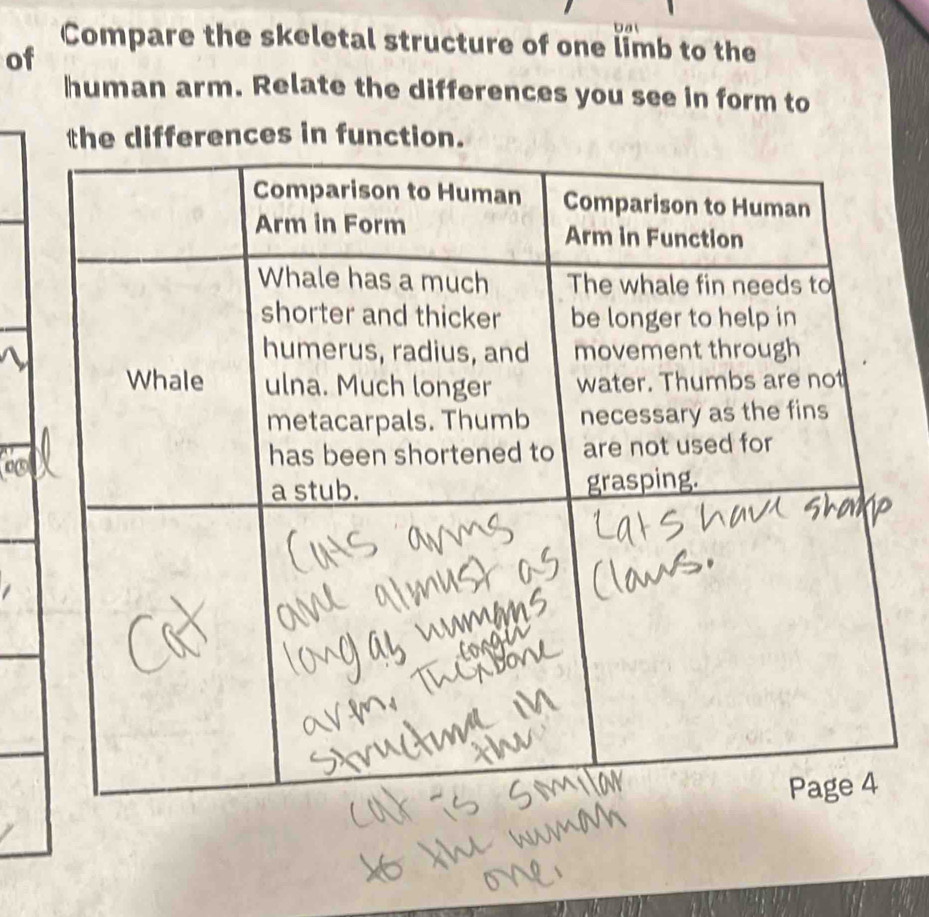 bat
Compare the skeletal structure of one limb to the
of
human arm. Relate the differences you see in form to
the differences in function.
Comparison to Human
Arm in Form
Comparison to Human
Arm in Function
Whale
Whale has a much
shorter and thicker
humerus, radius, and
ulna. Much longer
metacarpals. Thumb
has been shortened to
a stub.
The whale fin needs to
be longer to help in
movement through
water. Thumbs are not
necessary as the fins
are not used for
grasping.
Cat
Cats arms
are almost as
long as humans
longer
arm. The bone
structure in
the
cat is similar
to the human
one.
Cats have sharp
claws.
Page 4